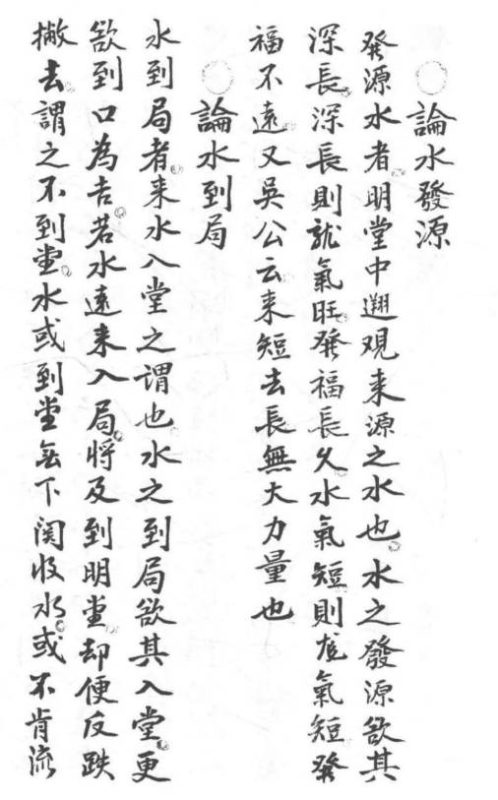 ○論水發源
發源水者明堂中遡观来源之水也。水之發源欲其
深長。深長則龍氣旺。發福長久。水氣短則龙氣短。發
福不遠。又吳公云来短去長無大力量也
○論水到局
水到局者。来水入堂之謂也。水之到局欲其入堂。更
欲到口為吉。若水遠来入局。将及到明堂。却便反跌
撇去。謂之不到堂。水或到堂無下関收水。或不肯流